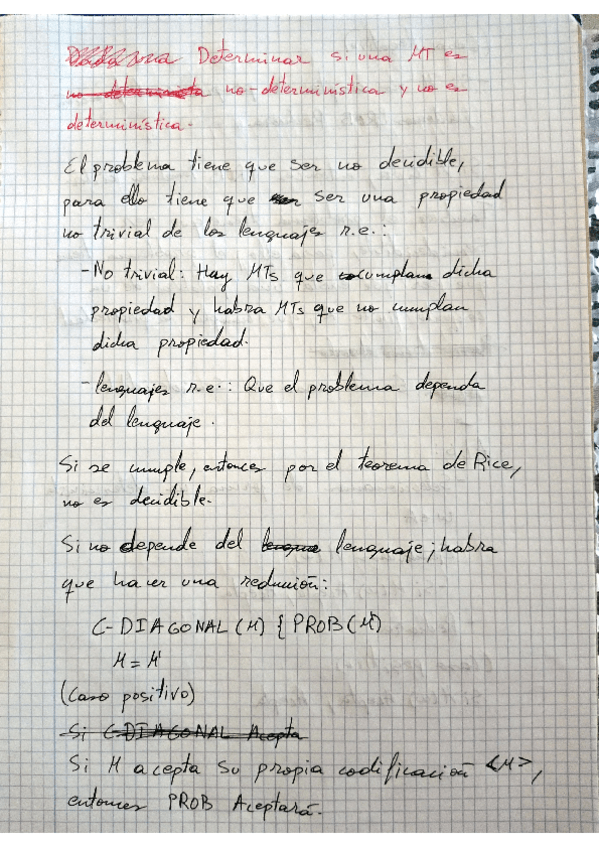 Determinar si una MT es
no-determinística y no es
determinística.
El problema tiene que ser no decidible,
para ello tiene que ser una propiedad
no trivial de los lenguajes r.e.:
-No trivial: Hay MTs que cumplan dicha
propiedad y habra MTs que no cumplan
dicha propiedad.
-lenguajes r.e.: Que el problema dependa
del lenguaje.
Si se cumple, entonces por el teorema de Rice,
no es decidible.
Si no depende del lenguaje; habra
que hacer una reducción:
C-DIAGONAL (M) { PROB (M')
M = M'
(Caso positivo)
Si C-DIAGONAL Acepta
Si M acepta su propia codificación <M>,
entonces PROB Aceptará.